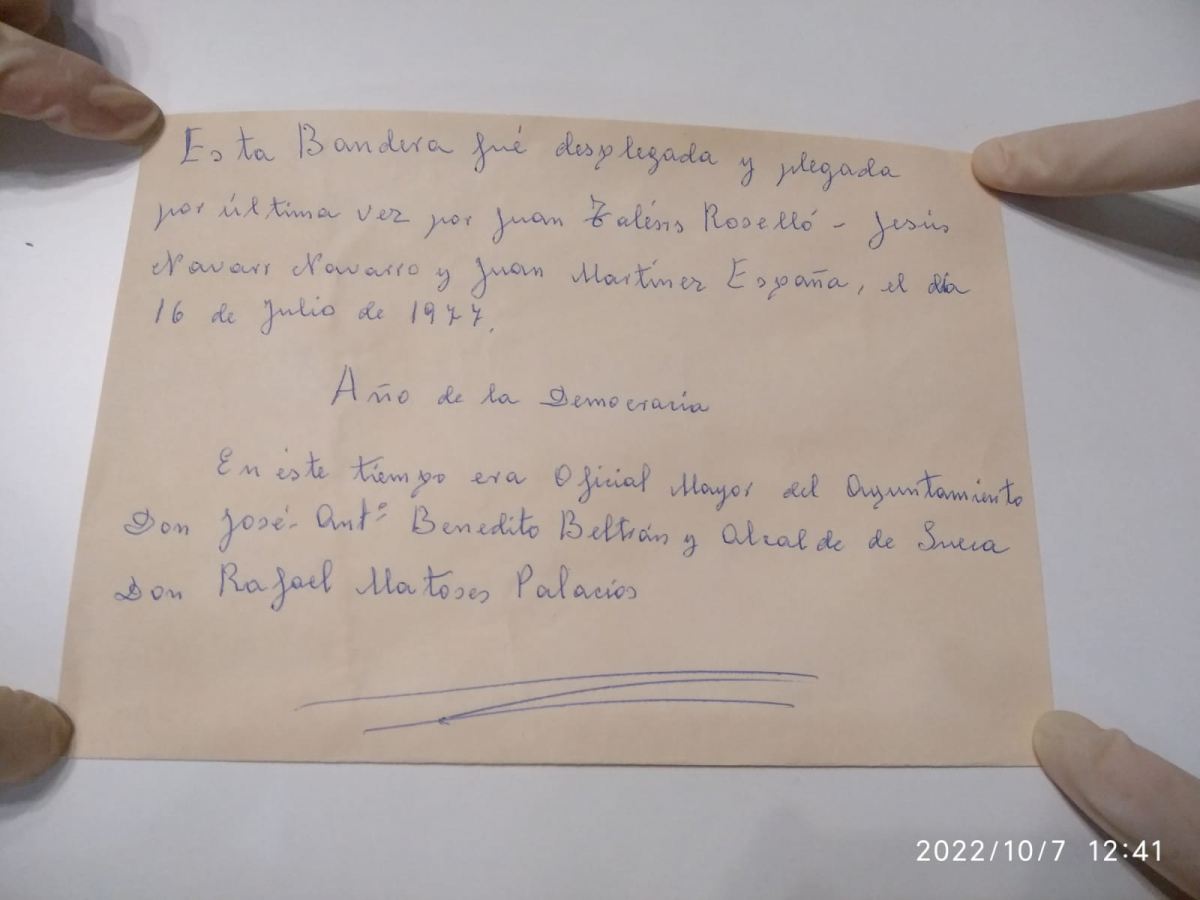 Esta Bandera fué desplegada y plegada
por última vez por Juan Roselló - Jesús
Navarr Navarro y Juan Martínez España, el día
16 de Julio de 1977.
Año de la Democracia
En éste tiempo era Oficial Mayor del Ayuntamiento
Don José-Antº Benedito Beltrán y Alcalde de Sueca
Don Rafael Matoses Palacios
2022/10/7 12:41